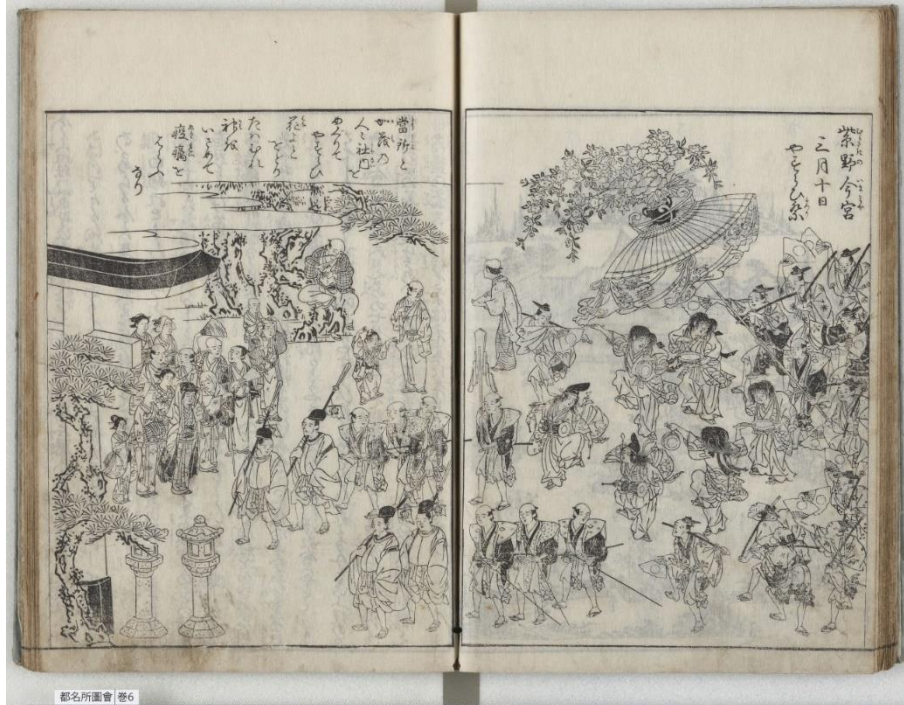 紫野今宮
三月十日
やすらひ祭
當所と
加茂の
人々社内を
めぐりて
やすらひ
花よと
をどり
たはむれ
神敵
いさめて
疫癘を
はらふ
なり
都名所圖會 巻6